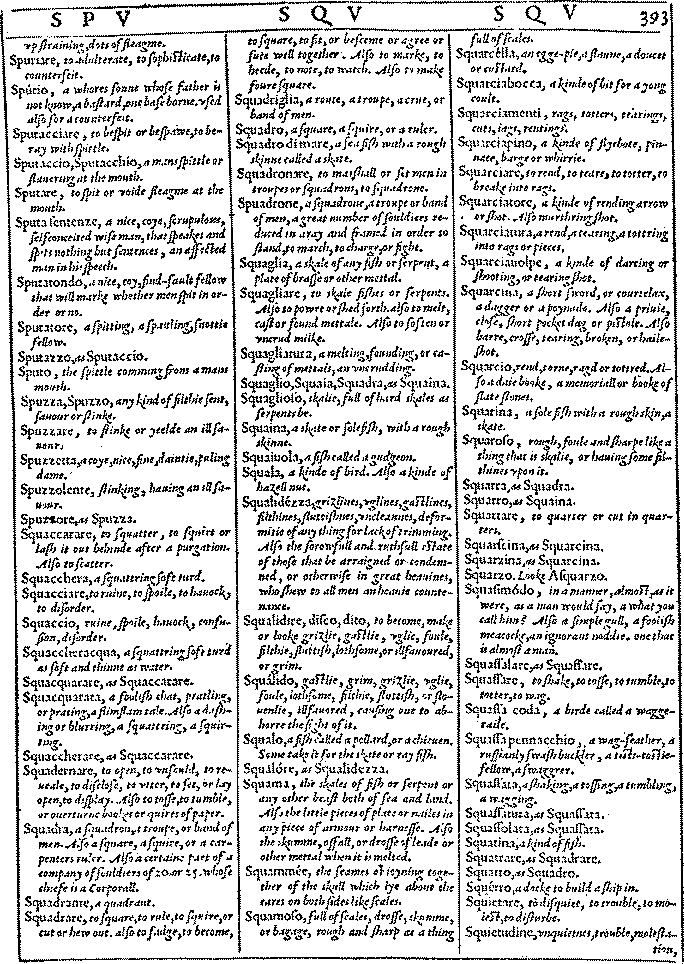 S P V
S Q V
S Q V
393
vp straining, dots of fleagme.
Spuriare, to adulterate, to sophisticate, to
counterfeit.
Spúrio, a whores sonne whose father is
not know, a bastard, one base borne. vsed
also for a counterfeit.
Sputacciare, to bespit or bespawe, to be-
ray with spittle.
Sputaccio, Sputacchio, a mans spittle or
slauering at the mouth.
Sputare, to spit or voide fleagme at the
mouth.
Sputa sentenze, a nice, coye, scrupulous,
selfeconceited wise man, that speakes and
spits nothing but sentences, an affected
man in his speech.
Sputatondo, a nice, coy, find-fault fellow
that will marke whether men spit in or-
der or no.
Sputatore, a spitting, a spauling, snottie
fellow.
Sputazzo, as Sputaccio.
Sputo, the spittle comming from a mans
mouth.
Spuzza, Spuzzo, any kind of filthie sent,
sauour or stinke.
Spuzzare, to stinke or yeelde an ill sa-
uour.
Spuzzetta, a coye, nice, fine, daintie, puling
dame.
Spuzzolente, stinking, hauing an ill sa-
uour.
Spuzzore, as Spuzza.
Squaccarare, to squatter, to squirt or
lash it out behinde after a purgation.
Also to scatter.
Squacchera, a squattring soft turd.
Squacciare, to ruine, to spoile, to hauock,
to disorder.
Squaccio, ruine, spoile, hauock, confu-
sion, disorder.
Squaccheracqua, a squattring soft turd
as soft and thinne as water.
Squacquarare, as Squaccarare.
Squacquarata, a foolish chat, pratling,
or prating, a flimflam tale. Also a dash-
ing or blurring, a squattring, a squir-
ting.
Squaccherare, as Squaccarare.
Squadernare, to open, to vnfould, to re-
ueale, to disclose, to vtter, to set, or lay
open, to display. Also to tosse, to tumble,
or ouerturne bookes or quires of paper.
Squadra, a squadron, a troupe, or band of
men. Also a square, a squire, or a car-
penters ruler. Also a certaine part of a
company of souldiers of 20 or 25. whose
chiefe is a Corporall.
Squadrante, a quadrant.
Squadrare, to square, to rule, to squire, or
cut or hew out. also to fadge, to become,
to square, to fit, or beseeme or agree or
sute well together. Also to marke, to
heede, to note, to watch. Also to make
foure square.
Squadriglia, a route, a troupe, a crue, or
band of men.
Squadro, a square, a squire, or a ruler.
Squadro di mare, a sea fish with a rough
skinne called a skate.
Squadronare, to marshall or set men in
troupes or squadrons, to squadrone.
Squadrone, a squadrone, a troupe or band
of men, a great number of souldiers re-
duced in aray and framed in order to
stand, to march, to charge, or fight.
Squaglia, a skale of any fish or serpent, a
plate of brasse or other mettal.
Squagliare, to skale fishes or serpents.
Also to powre or shed forth. also to melt,
cast or found mettale. Also to soften or
vncrud milke.
Squagliatura, a melting, founding, or ca-
sting of mettals, an vncrudding.
Squaglio, Squaia, Squadra, as Squaina.
Squaglioso, skalie, full of hard skales as
serpents be.
Squaina, a skate or sole fish, with a rough
skinne.
Squaiuola, a fish called a gudgeon.
Squala, a kinde of bird. Also a kinde of
hazell nut.
Squalidézza, grizlines, vglines, gastlines,
filthines, sluttishnes, vncleannes, defor-
mitie of any thing for lack of trimming.
Also the sorowfull and ruthfull estate
of those that be arraigned or condem-
ned, or otherwise in great heauines,
who shew to all men an heauie counte-
nance.
Squalidire, disco, dito, to become, make
or looke grizlie, gastlie, vglie, foule,
filthie, sluttish, lothsome, or illfauoured,
or grim.
Squálido, gastlie, grim, grizlie, vglie,
foule, lothsome, filthie, sluttish, or slo-
uenlie, illfauored, causing one to ab-
horre the sight of it.
Squalo, a fish called a pollard, or a chieuen.
Some take it for the skate or ray fish.
Squalóre, as Squalidezza.
Squama, the skales of fish or serpent or
any other beast both of sea and land.
Also the little pieces of plate or nailes in
any piece of armour or harnesse. Also
the skumme, offall, or drosse of leade or
other mettal when it is melted.
Squammée, the seames of ioyning toge-
ther of the skull which lye about the
eares on both sides like scales.
Squamoso, full of scales, drosse, skumme,
or bagage, rough and sharp as a thing
full of scales.
Squarcélla, an egge-pie, a flaune, a doucet
or custard.
Squarciabocca, a kinde of bit for a yong
coult.
Squarciamenti, rags, totters, tearings,
cuts, iags, rentings.
Squarciapino, a kinde of flyebote, pin-
nace, barge or whirrie.
Squarciare, to rend, to teare, to totter, to
breake into rags.
Squarciatore, a kinde of rending arrow
or shot. Also murthring shot.
Squarciatura, a rend, a tearing, a tottring
into rags or pieces.
Squarciauolpe, a kinde of darting or
shooting, or tearing shot.
Squarcina, a short sword, or courtelax,
a dagger or a poynado. Also a priuie,
close, short pocket dag or pistole. Also
barre, crosse, tearing, broken, or haile-
shot.
Squarcio, rend, torne, ragd or totred. Al-
so a daie booke, a memoriall or booke of
slate stones.
Squarina, a sole fish with a rough skin, a
skate.
Squaroso, rough, foule and sharpe like a
thing that is skalie, or hauing some fil-
thines vpon it.
Squarra, as Squadra.
Squarro, as Squaina.
Squartare, to quarter or cut in quar-
ters.
Squarscina, as Squarcina.
Squarzina, as Squarcina.
Squarzo. Looke Asquarzo.
Squasimódo, in a manner, almost, as it
were, as a man would say, a what you
call him? Also a simple gull, a foolish
meacocke, an ignorant noddie. one that
is almost a man.
Squassalare, as Squassare.
Squassare, to shake, to tosse, to tumble, to
totter, to wag.
Squassa coda, a bird called a wagge-
taile.
Squassa pennacchio, a wag-feather, a
russianly swash buckler, a tistie-tostie-
fellow, a swaggrer.
Squassata, a shaking, a tossing, a tumbling,
a wagging.
Squassatura, as Squassata.
Squassolata, as Squassata.
Squatina, a kind of fish.
Squatrare, as Squadrare.
Squatro, as Squadro.
Squérro, a docke to build a ship in.
Squietare, to disquiet, to trouble, to mo-
lest, to disturbe.
Squietudine, vnquietnes, trouble, molesta-
tion,